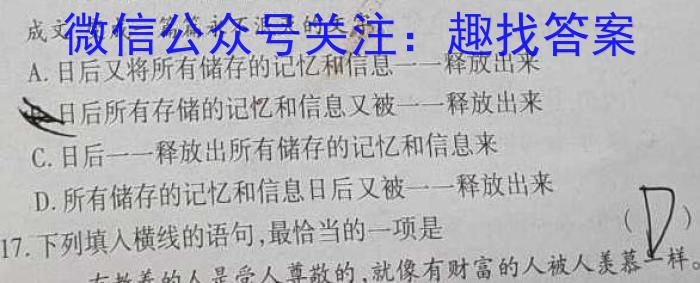 成文
微信公众号关注：趣找答案
A.日后又将所有储存的记忆和信息一一释放出来
B.日后所有存储的记忆和信息又被一一释放出来
C.日后一一释放出所有储存的记忆和信息来
D.所有储存的记忆和信息日后又被一一释放出来
17.下列填入横线的语句,最恰当的一项是 (D)
有教养的人是受人尊敬的,就像有财富的人被人羡慕一样。